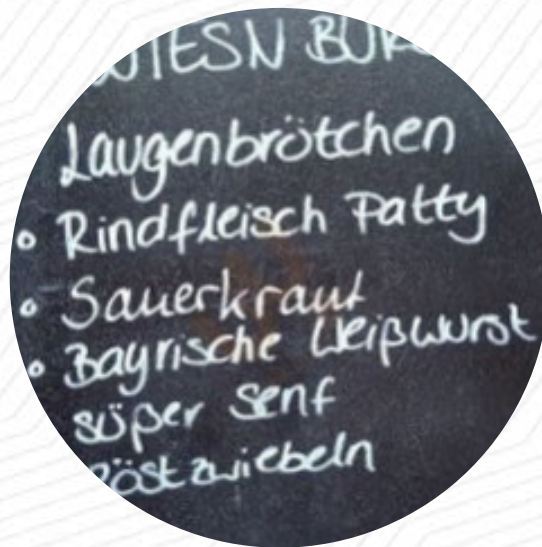 WIESN BUR
Laugenbrötchen
• Rindfleisch Patty
• Sauerkraut
• Bayrische Weißwurst
süßer Senf
Röstzwiebeln